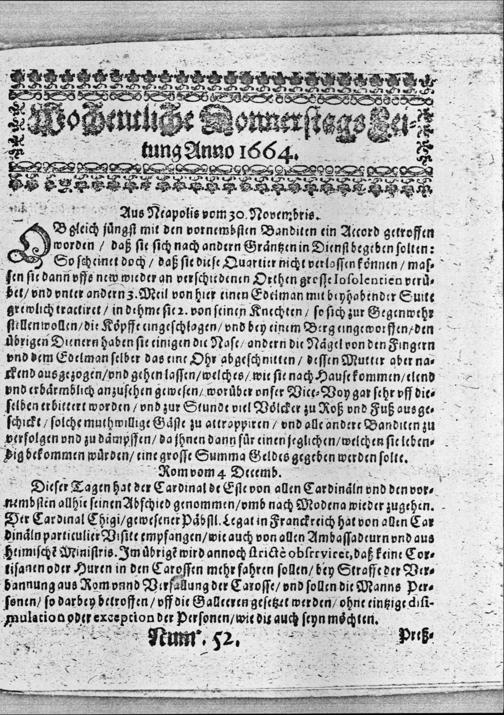 Wochentliche Donnerstags Zei-
tung Anno 1664.
Aus Neapolis vom 30. Novembris.
OB gleich jüngst mit den vornembsten Banditen ein Accord getroffen
worden / daß sie sich nach andern Gräntzen in Dienst begeben solten:
So scheinet doch / daß sie diese Quartier nicht verlassen können / mas-
sen sie dann vffs new wieder an verschiedenen Orthen grosse Insolentien verü-
bet / vnd vnter andern 3. Meil von hier einen Edelman mit beyhabender Suite
grewlich tractiret / in dehme sie 2. von seinen Knechten / so sich zur Gegenwehr
stellen wollen / die Köpffe eingeschlagen / vnd bey einem Berg eingeworffen / den
übrigen Dienern haben sie einigen die Nase / andern die Nägel von den Fingern
vnd dem Edelman selber das eine Ohr abgeschnitten / dessen Mutter aber na-
ckend ausgezogen / vnd gehen lassen / welches / wie sie nach Hause kommen / elend
vnd erbärmblich anzusehen gewesen / worüber vnser Vice-Roy gar sehr vff die-
selben erbittert worden / vnd zur Stunde viel Völcker zu Roß vnd Fuß ausge-
schickt / solche muthwillige Gäste zu attrappiren / vnd alle andere Banditen zu
verfolgen vnd zu dämpffen / da jhnen dann für einen jeglichen / welchen sie leben-
dig bekommen würden / eine grosse Summa Geldes gegeben werden solte.
Rom vom 4 Decemb.
Dieser Tagen hat der Cardinal de Este von allen Cardinäln vnd den vor-
nembsten allhie seinen Abschied genommen / vmb nach Modena wieder zugehen.
Der Cardinal Chigi / gewesener Päbstl. Legat in Franckreich hat von allen Car
dinäln particulier Visite empfangen / wie auch von allen Ambassadeurn vnd aus
heimische Ministris. Im übrige wird annoch stricte observiret, daß keine Cor-
tisanen oder Huren in den Carossen mehr fahren sollen / bey Straffe der Ver-
bannung aus Rom vnnd Verfallung der Carosse / vnd sollen die Manns Per-
sonen / so darbey betroffen / vff die Galleeren gesetzet werden / ohne eintzige disi-
mulation oder exception der Personen / wie die auch seyn möchten.
Num. 52. Preß-